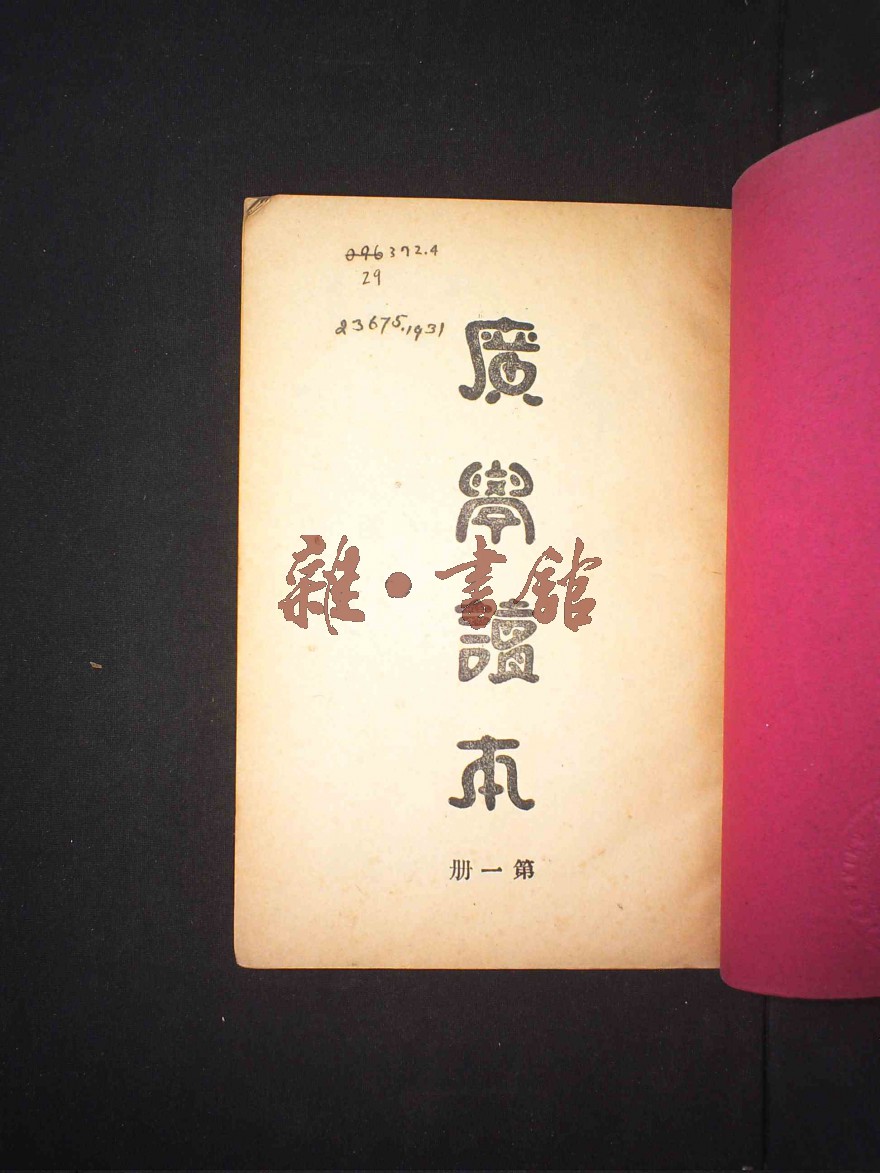 096 372.4
29
23675.1931
廣學讀本
第一册
雜·書館